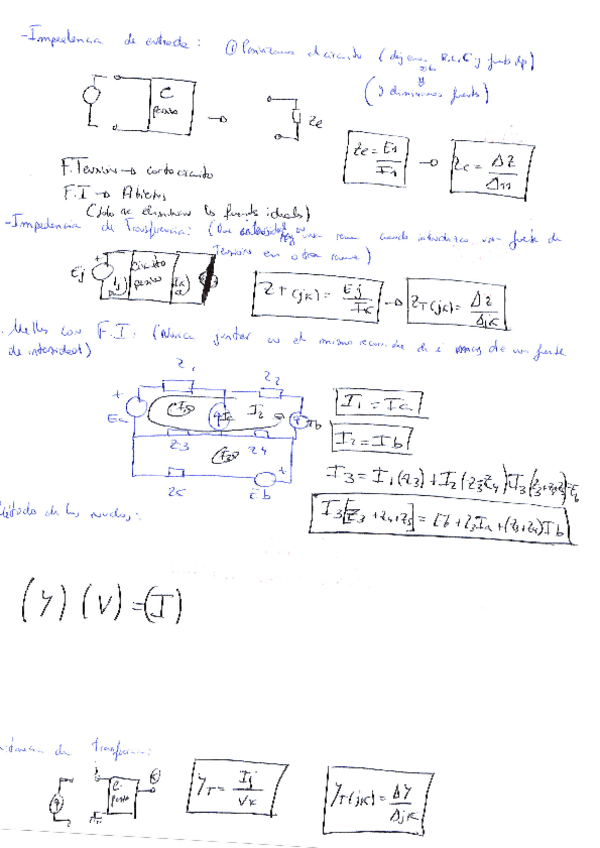 - Impedencia de entrada: ① Pasivizamos el circuito (dejamos R, L, C y fuente dp)
(y eliminamos fuente)
C
pasivo
Ze
Ze = E1/I1 → Ze = ΔZ/Δ11
F. Tensión → cortocircuito
F.I → Abiertos
(Solo se eliminan las fuente ideales)
- Impedencia de Transferencia: una rama cuando introduzco una fuente de
Tensión en otra rama)
Ej
Circuito
pasivo
ZT(jk) = Ej/Ik → ZT(jk) = ΔZ/Δjk
Mallas con F.I. (Nunca juntar en el mismo recorrido de i mas de una fuente
de intensidad)
Z1
Z2
Ea
I2
Ib
Z3
Z4
I3
Z5
Eb
I1 = Ia
I2 = Ib
I3 = I1(Z3) + I2(Z3+Z4)
I3[Z3+Z4+Z5] = Eb + Z3Ia + (Z3+Z4)Ib
Método de los nudos:
(Y) (V) = (I)
de Transferencia:
C.
pasivo
YT = Ij/Vk
YT(jk) = ΔY/Δjk